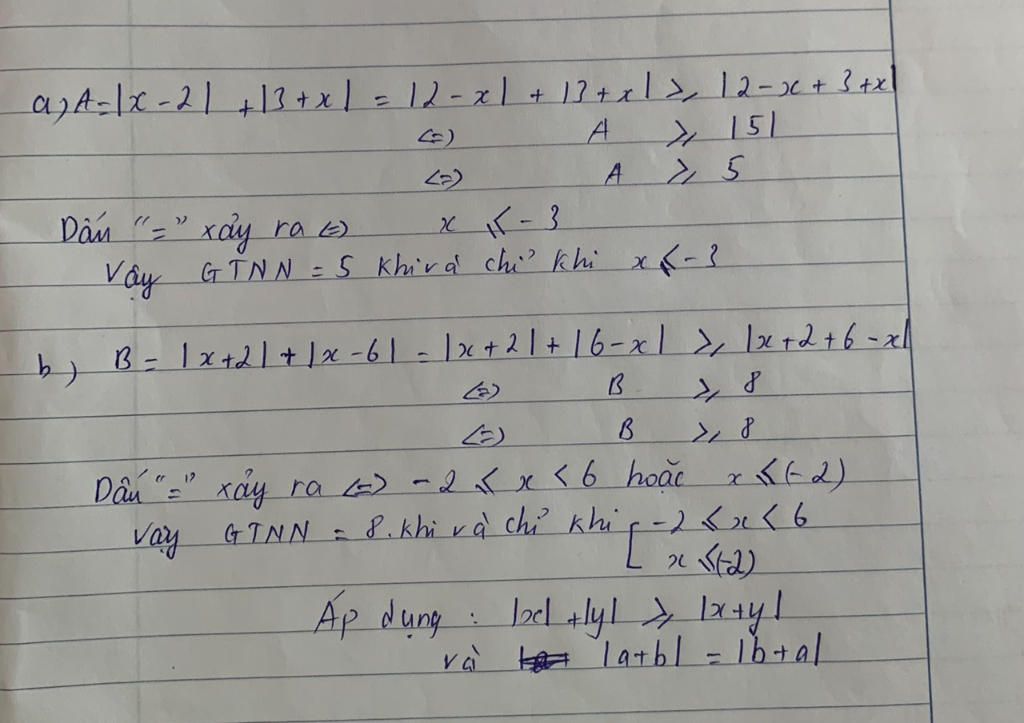 a) A = |x - 2| + |3 + x| = |2 - x| + |3 + x| ⩾ |2 - x + 3 + x|
<=> A ⩾ |5|
<=> A ⩾ 5
Dấu "=" xảy ra <=> x ⩽ - 3
Vậy GTNN = 5 khi và chỉ khi x ⩽ - 3
b) B = |x + 2| + |x - 6| = |x + 2| + |6 - x| ⩾ |x + 2 + 6 - x|
<=> B ⩾ 8
<=> B ⩾ 8
Dấu "=" xảy ra <=> - 2 ⩽ x < 6 hoặc x ⩽ (- 2)
Vay GTNN = 8. khi và chỉ khi [ - 2 ⩽ x < 6
x ⩽ (-2)
Áp dụng : |x| + |y| ⩾ |x + y|
và |a + b| = |b + a|